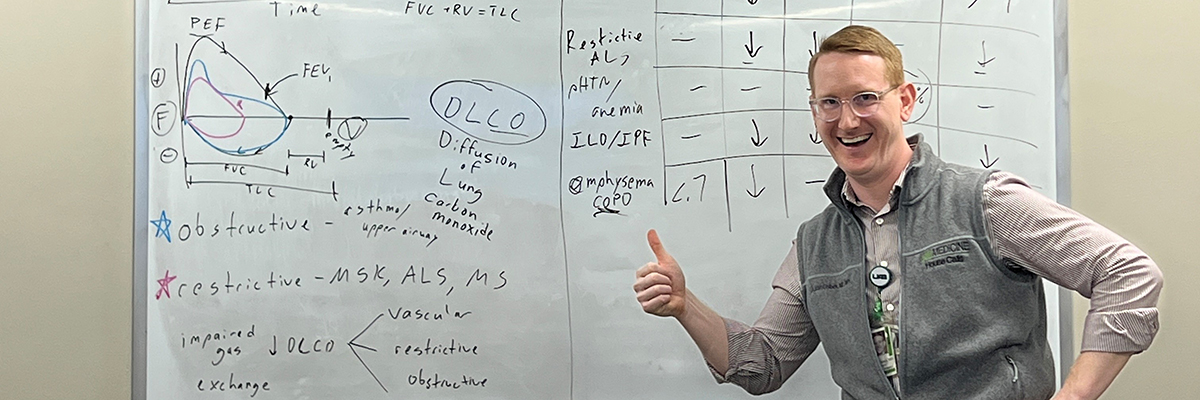 Time
FVC + RV = TLC
PEF
FEV1
+
F
−
V
RV
FVC
TLC
DLCO
Diffusion
of
Lung
carbon
monoxide
obstructive - asthma/
upper airway
restrictive - MSK, ALS, MS
impaired
gas
exchange
↓ DLCO
vascular
restrictive
obstructive
Restictie
ALS
— ↓ ↓ — ↓
pHTN/
anemia
— — —
ILD/IPF
— ↓ ↓ ↓
emphysema
COPD
<.7 ↓ —
MEDICINE
House Calls
UAB